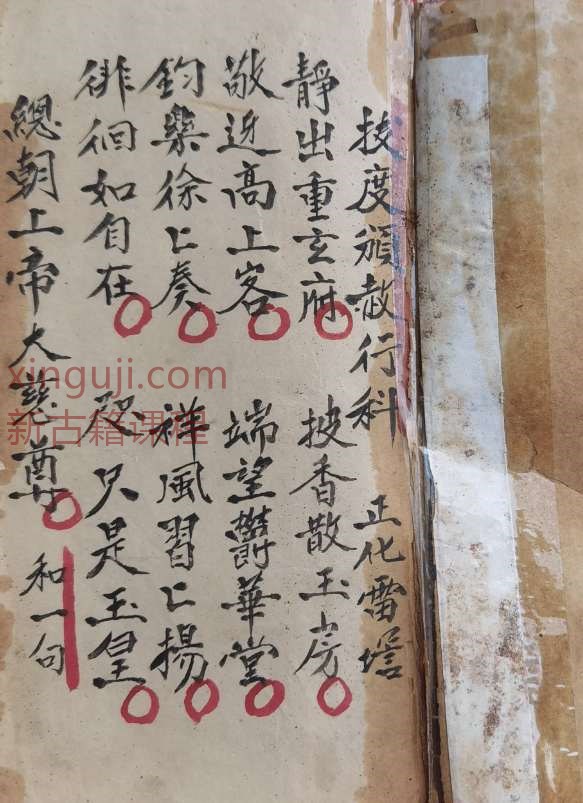 拔度頒赦行科　正化雷壇
靜出重玄府　披香散玉房
敬迓高上客　端望欝華堂
鈞樂徐〻奏　祥風習〻揚
徘徊如自在　咫尺是玉皇
總朝上帝大慈尊　和一句
xinguji.com
新古籍课程